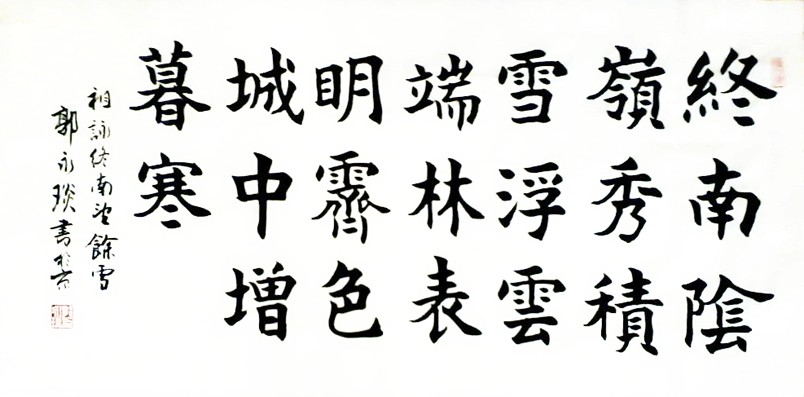 終南陰
嶺秀積
雪浮雲
端林表
明霽色
城中增
暮寒
祖詠終南望餘雪
郭永琰書於京